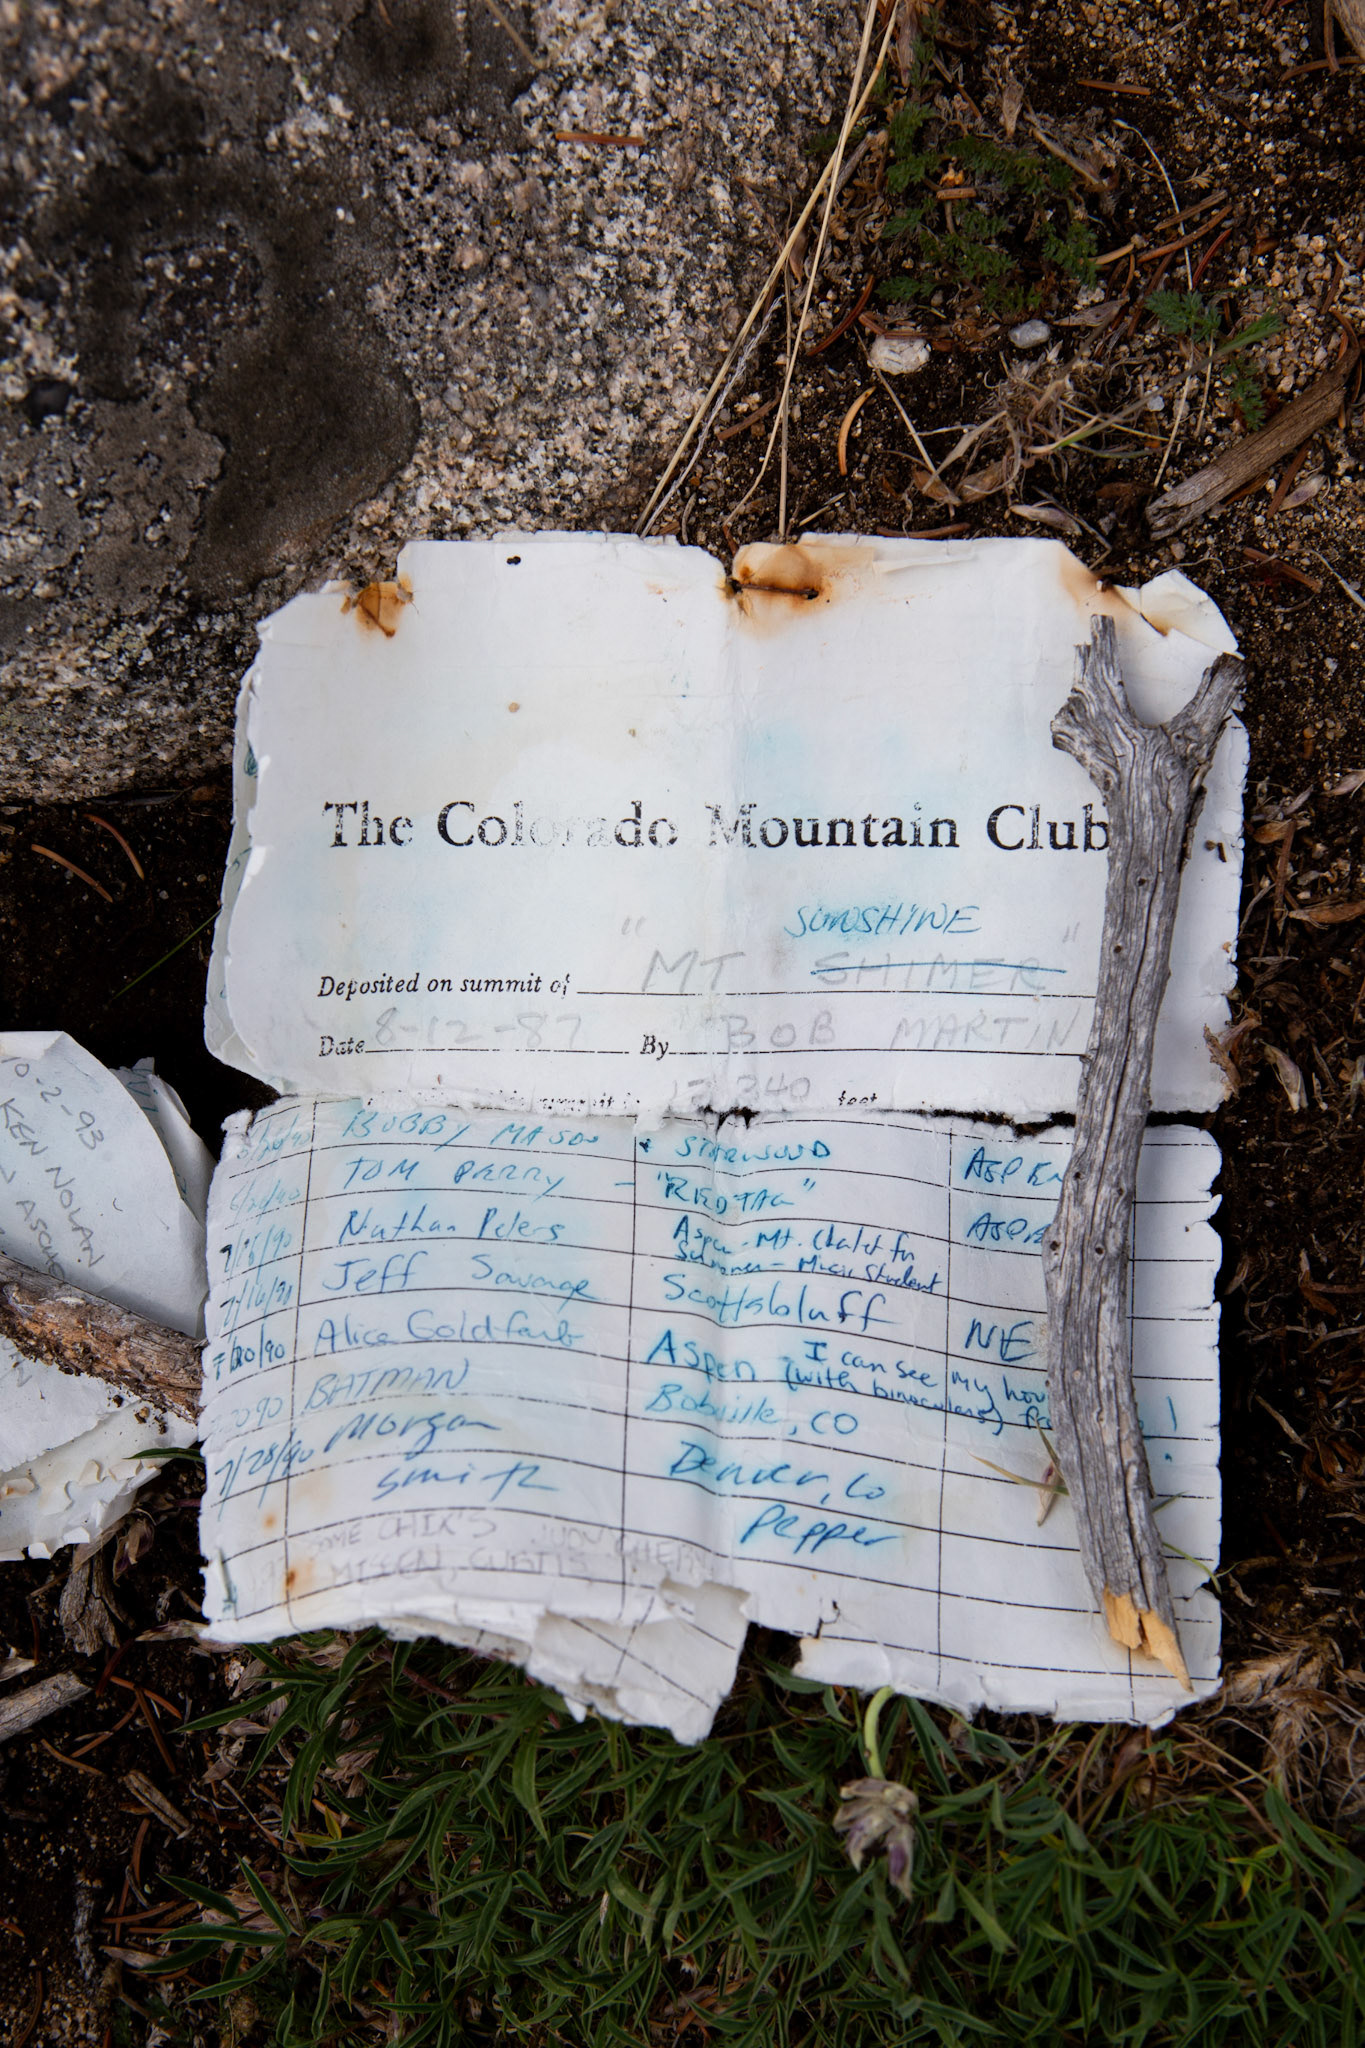 The Colorado Mountain Club
SUNSHINE
Deposited on summit of " MT SHIMER "
Date 8-12-87 By BOB MARTIN
summit 12,340 feet
BOBBY MASON STARWOOD ASPEN
TOM PERRY - "RED TAG" ASPE
7/16/90 Nathan Peters Aspen - Mt. Chalet for
Summer - Music Student
7/16/90 Jeff Savage Scottsbluff NE
7/20/90 Alice Goldfarb Aspen - I can see my hou
(with binoculars) !
BATMAN Bobville, CO
7/28/90 Morgan Denver, Co
Smith Pepper
SOME CHIX'S JUDY
CURTIS
10-2-93
KEN NOLAN